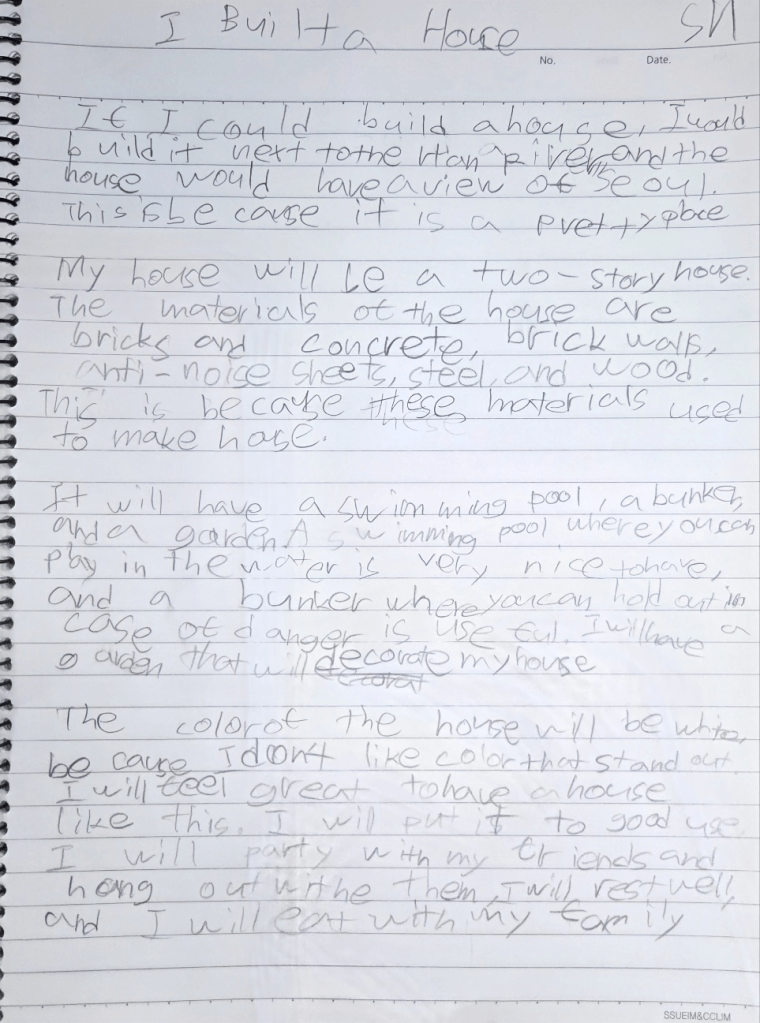 I Built a House
SN
No.
Date.
If I could build a house, I would
build it next to the Han river, and the
house would have a view of Seoul.
This is because it is a pretty place
My house will be a two-story house.
The materials of the house are
bricks and concrete, brick walls,
anti-noise sheets, steel, and wood.
This is because these materials used
to make hase.
It will have a swimming pool, a bunker,
and a garden. A swimming pool where you can
play in the water is very nice to have,
and a bunker where you can hold out in
case of danger is useful. I will have a
garden that will decorate my house
The color of the house will be white,
because I don't like color that stand out.
I will feel great to have a house
like this. I will put it to good use
I will party with my friends and
hang out withe them, I will rest well,
and I will eat with my family
SSUEIM&CCLIM